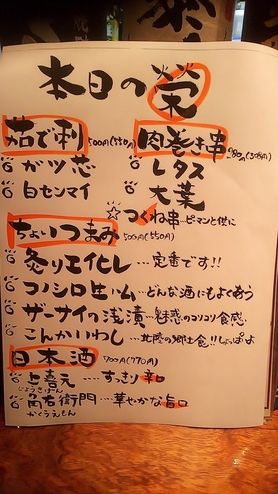 本日の栄
茹で刺 500円(550円)
ガツ芯
白センマイ
肉巻き串 280円(308円)
レタス
大葉
☆つくね串…ピーマンと供に
ちょいつまみ 500円(550円)
炙りエイヒレ…定番です!!
コノシロ生ハム…どんな酒にもよく合う
ザーサイの浅漬…魅惑のコリコリ食感
こんかいわし…北陸の郷土食!!しょっぱよ
日本酒 700円(770円)
上喜元……すっきり辛口
じょうきげん
角右衛門……華やかな旨口
かくうえもん